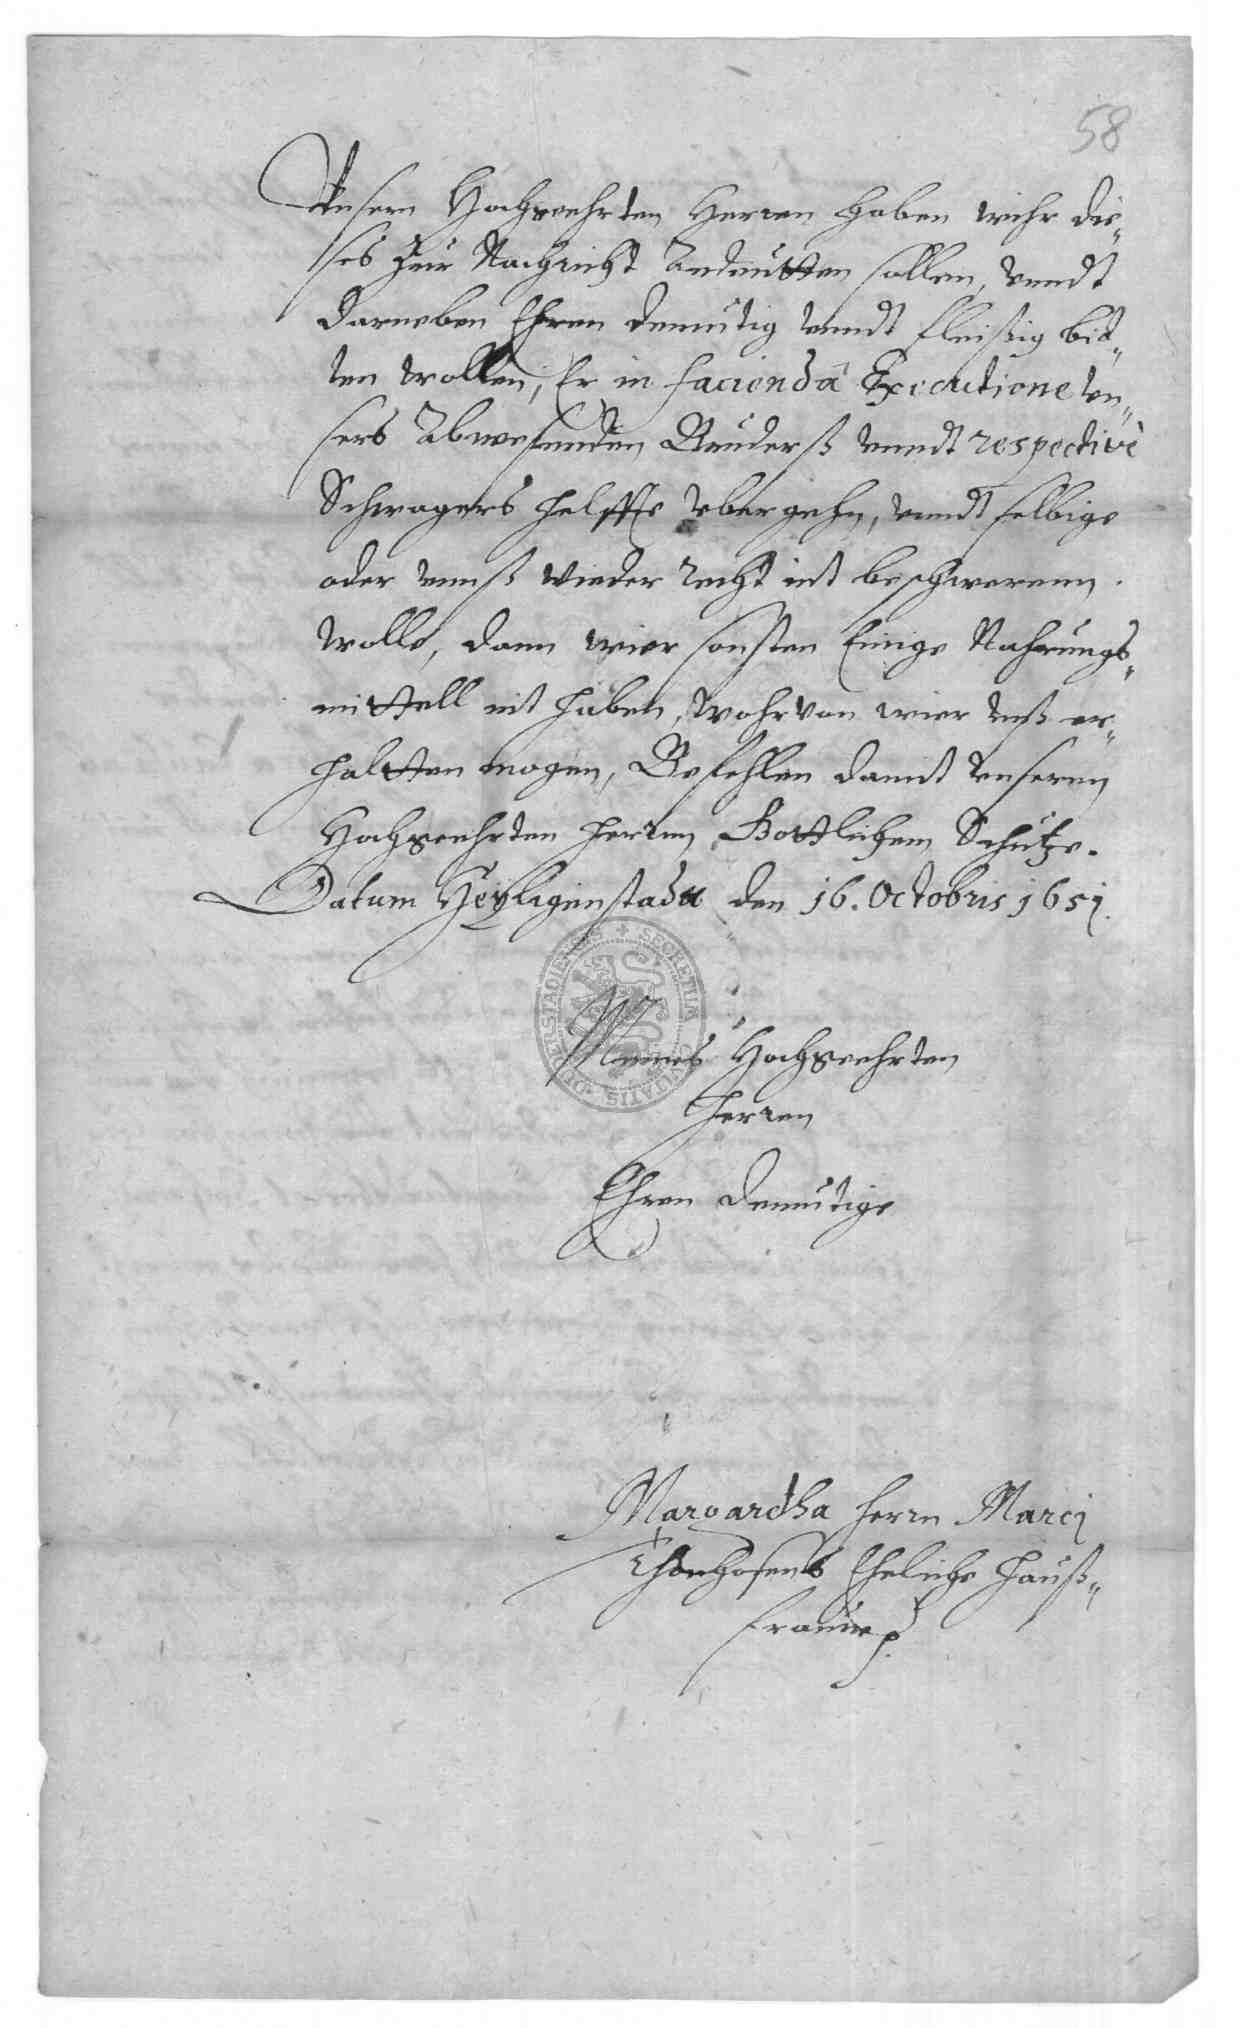 58
Unsern Hochgeehrten Herren haben wihr die„
ses zur Nachricht Andeutten sollen, vundt
darneben Ehren demutig vundt fleißig bit„
ten wollen, Er in facienda Executione vn„
sers Abwesenden Bruderß vundt respectivè
Schwagers helffte vbergehn, vundt selbige
oder vnnß wieder recht nit beschwerenn
wolle, dann wier sonsten Einige Nahrungs„
mittell nit haben, wohrvon wier vnß er„
haltten mogen, Befehlen damit vnseren
Hochgeehrten herren Gottlichem Schutze.
Datum Heyligenstadt den 16. Octobris 1651.
SECRETUM CIVITATIS DUDERSTADIENSIS
Meines Hochgeehrten
herren
Ehren demutige
Margaretha herrn Marci
Eheliche hauß„
frauw